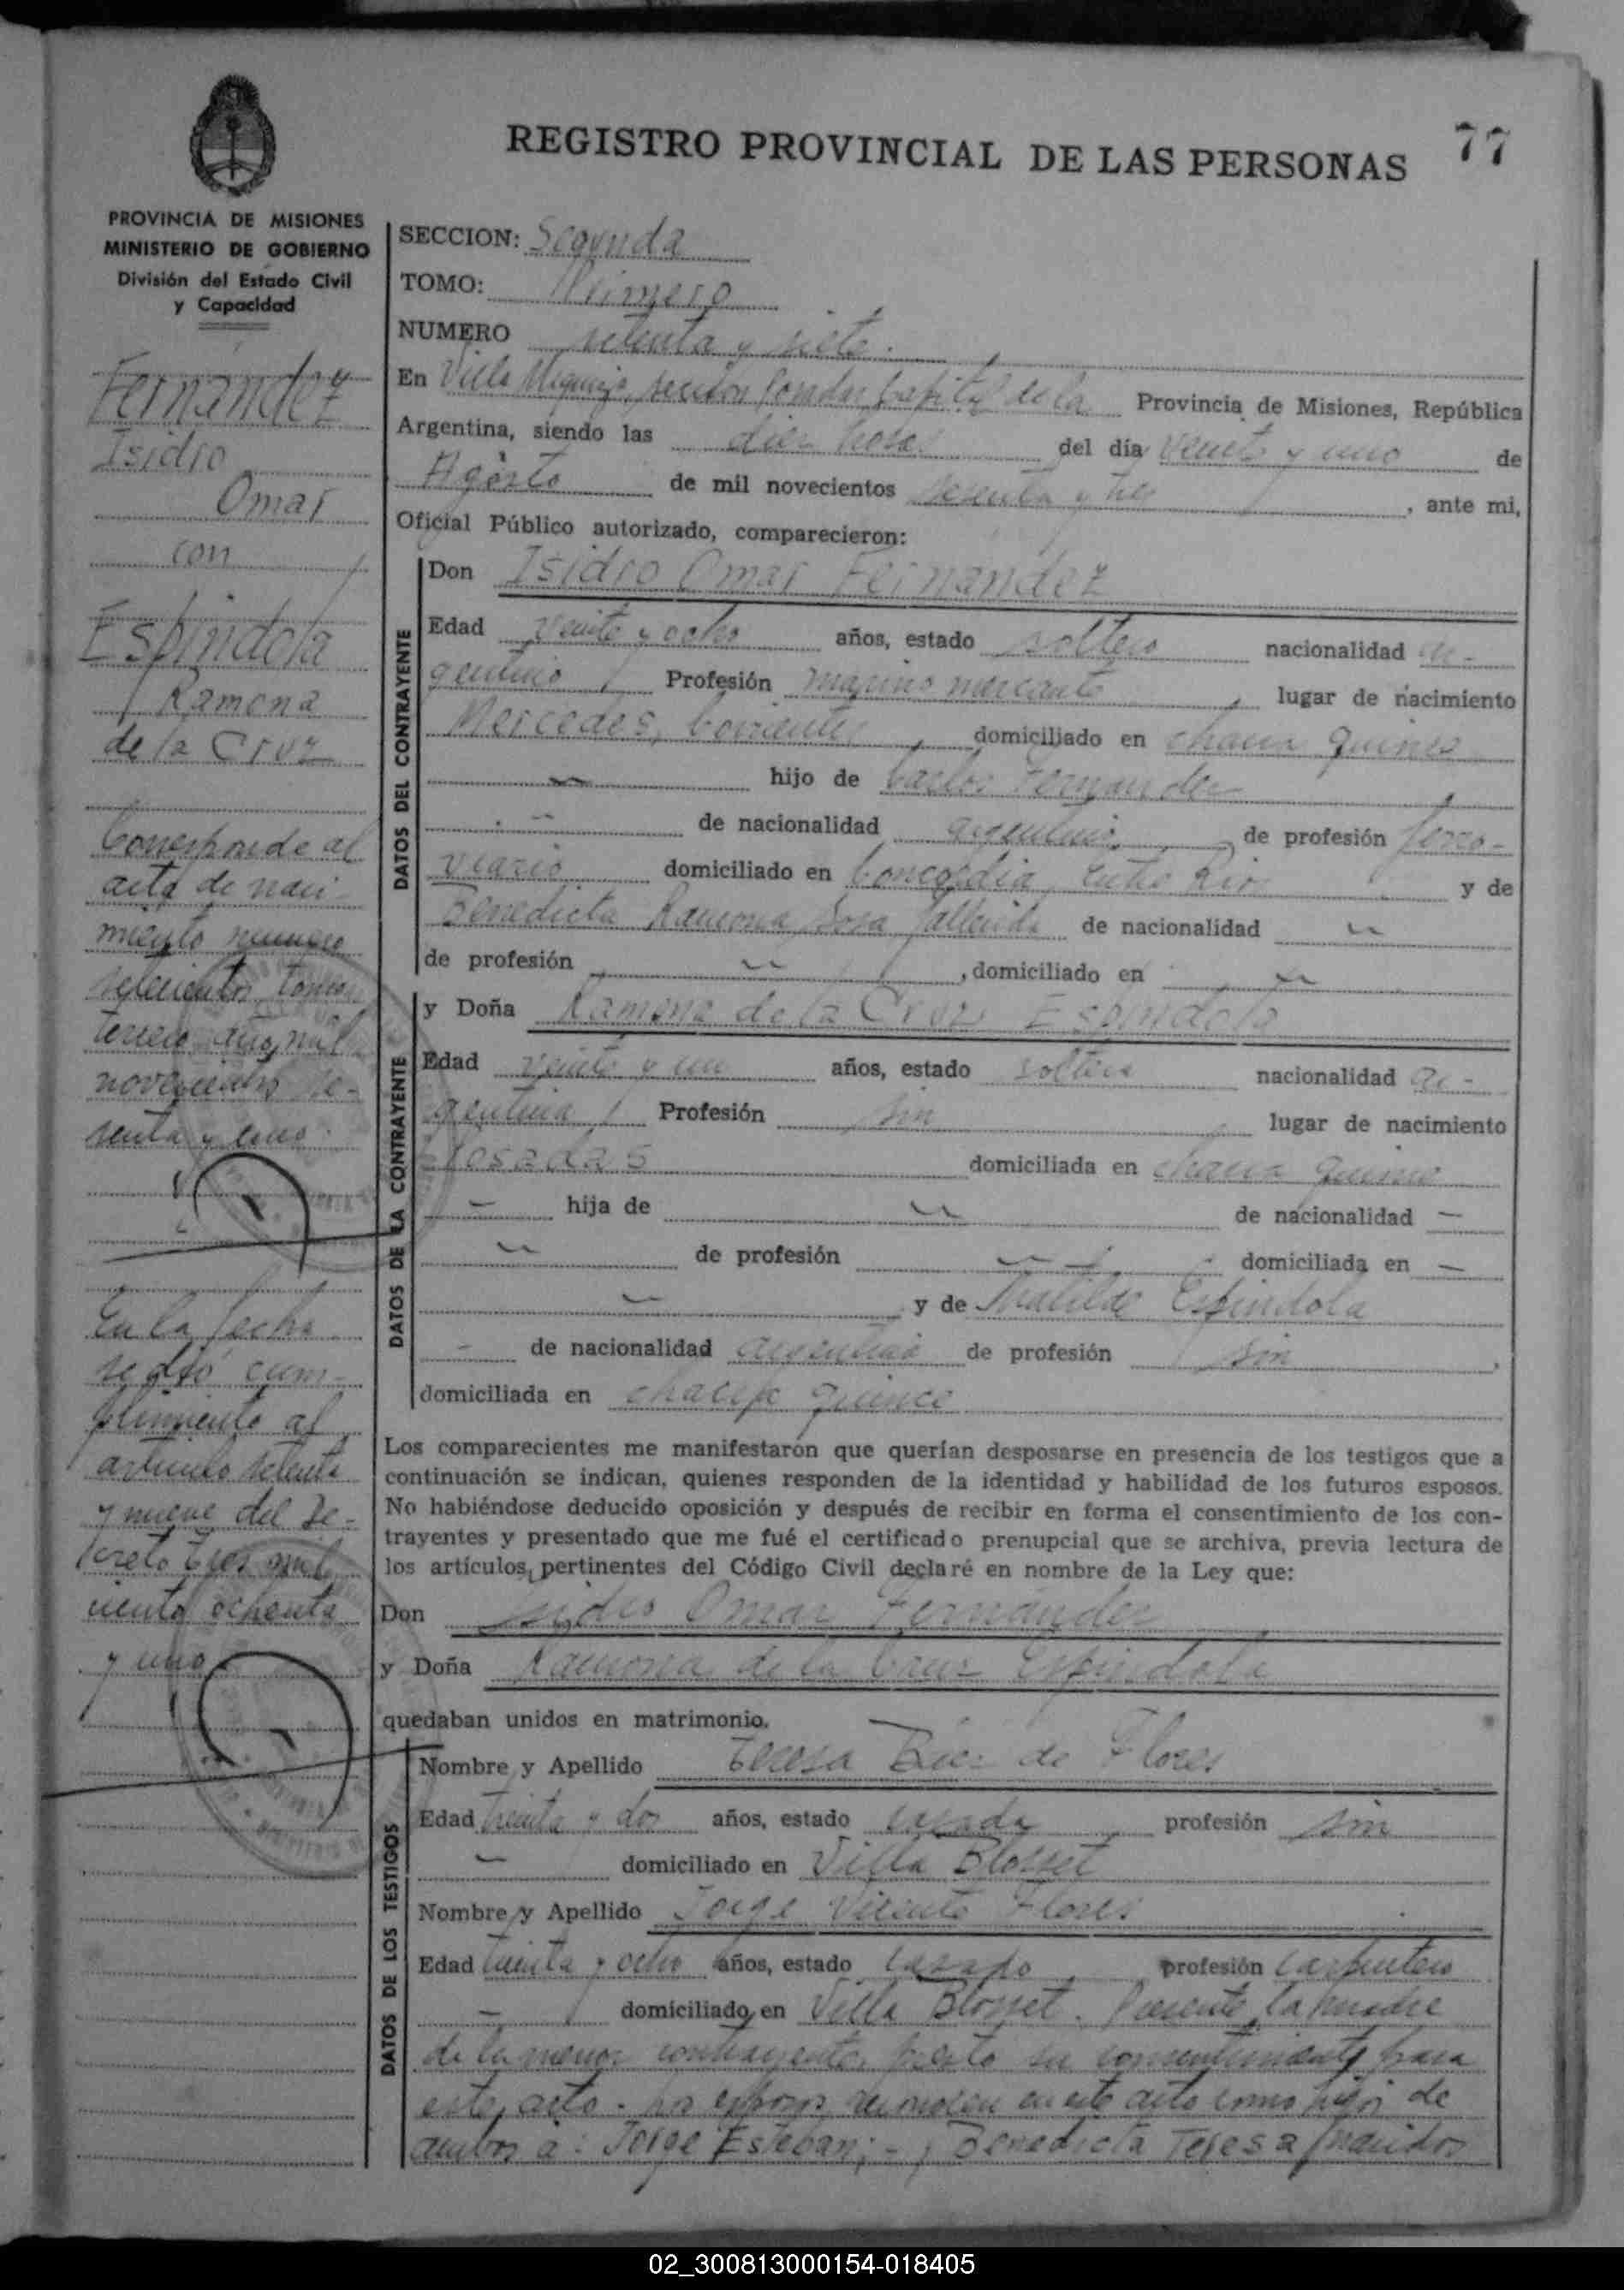 77
REGISTRO PROVINCIAL DE LAS PERSONAS
PROVINCIA DE MISIONES
MINISTERIO DE GOBIERNO
División del Estado Civil
y Capacidad
Fernández
Isidro
Omar
con
Espindola
Ramona
de la Cruz
Corresponde al
acta de naci-
miento numero
setecientos, tomo
tercero año mil
novecientos se-
senta y uno.
En la fecha
se dió cum-
plimiento al
artículo setenta
y nueve del De-
creto tres mil
ciento ochenta
y uno
SECCION: Segunda
TOMO: Primero
NUMERO setenta y siete.
En Villa Urquiza, seccion Posadas, Capital de la Provincia de Misiones, República
Argentina, siendo las diez horas del día veinte y uno de
Agosto de mil novecientos sesenta y tres, ante mi,
Oficial Público autorizado, comparecieron:
DATOS DEL CONTRAYENTE
Don Isidro Omar Fernandez
Edad veinte y ocho años, estado soltero nacionalidad ar-
gentino Profesión marino mercante, lugar de nacimiento
Mercedes, Corrientes, domiciliado en chacra quince
hijo de Carlos Fernandez
de nacionalidad argentino, de profesión ferro-
viario domiciliado en Concordia, Entre Rios y de
Benedicta Ramona Sosa fallecida de nacionalidad
de profesión , domiciliado en
DATOS DE LA CONTRAYENTE
y Doña Ramona de la Cruz Espindola
Edad veinte y un años, estado soltera nacionalidad ar-
gentina Profesión sin lugar de nacimiento
Posadas domiciliada en chacra quince
hija de de nacionalidad
de profesión domiciliada en
y de Matilde Espindola
de nacionalidad argentina de profesión sin,
domiciliada en chacra quince
Los comparecientes me manifestarón que querían desposarse en presencia de los testigos que a
continuación se indican, quienes responden de la identidad y habilidad de los futuros esposos.
No habiéndose deducido oposición y después de recibir en forma el consentimiento de los con-
trayentes y presentado que me fué el certificado prenupcial que se archiva, previa lectura de
los artículos pertinentes del Código Civil declaré en nombre de la Ley que:
Don Isidro Omar Fernández
y Doña Ramona de la Cruz Espindola
quedaban unidos en matrimonio.
DATOS DE LOS TESTIGOS
Nombre y Apellido Teresa de Flores
Edad treinta y dos años, estado casada profesión sin
domiciliado en Villa Blosset
Nombre y Apellido Jorge Vicente Flores
Edad treinta y ocho años, estado casado profesión carpintero
domiciliado en Villa Blosset. Presente la madre
de la menor contrayente, presto su consentimiento para
este acto. Los esposos reconocen en este acto como hijos de
ambos a: Jorge Esteban; - ; Benedicta Teresa nacidos
02_300813000154-018405